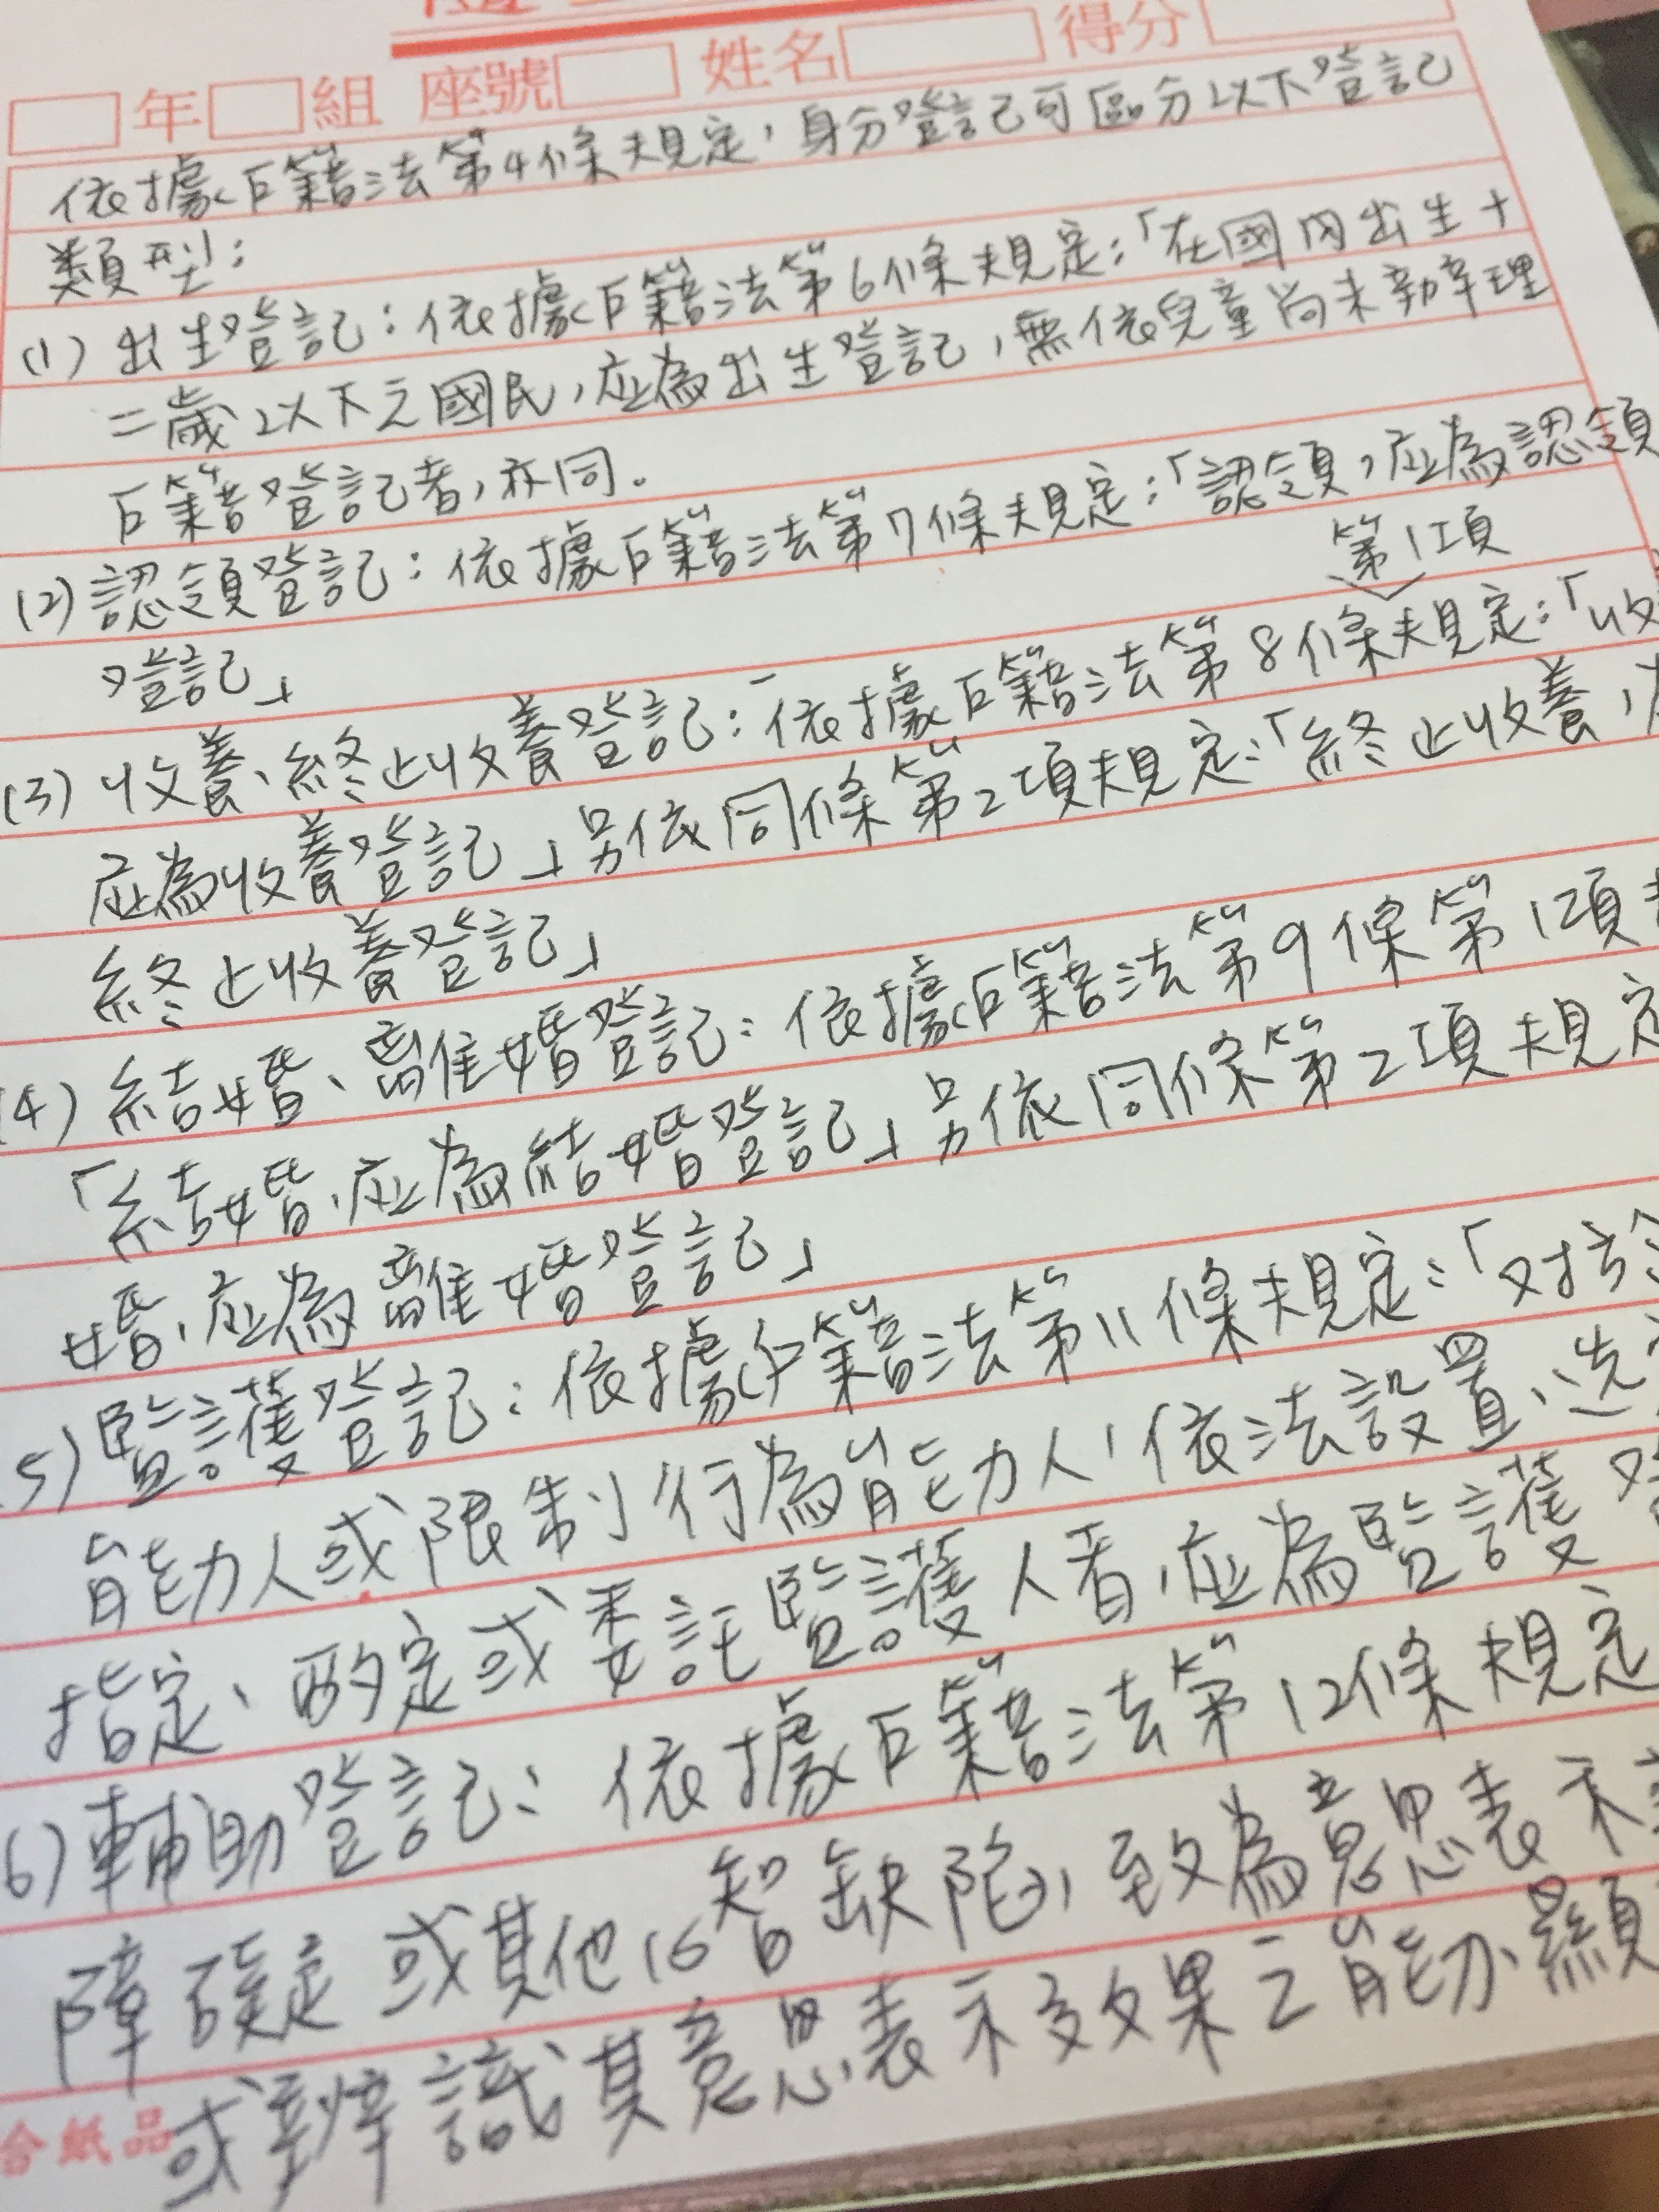 年 組 座號 姓名 得分
依據戶籍法第4條規定，身分登記可區分以下登記
類型：
(1) 出生登記：依據戶籍法第6條規定：「在國內出生十
二歲以下之國民，應為出生登記，無依兒童尚未辦理
戶籍登記者，亦同。
(2) 認領登記：依據戶籍法第7條規定：「認領，應為認領
登記」
第1項
(3) 收養、終止收養登記：依據戶籍法第8條規定：「收
應為收養登記」另依同條第2項規定：「終止收養，
終止收養登記」
(4) 結婚、離婚登記：依據戶籍法第9條第1項
「結婚，應為結婚登記」另依同條第2項規定
婚，應為離婚登記」
5) 監護登記：依據戶籍法第11條規定：「對於
能力人或限制行為能力人，依法設置、選
指定、酌定或委託監護人者，應為監護
6) 輔助登記：依據戶籍法第12條規定
障礙或其他心智缺陷，致為意思表示
或辨識其意思表示效果之能力，顯
合紙品